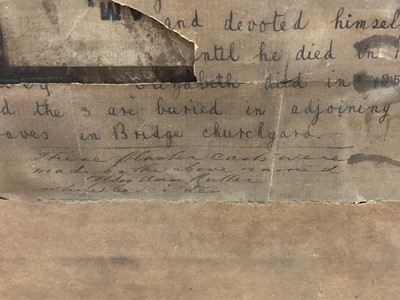 and devoted himsel
until he died in 1
Elizabeth died in 185
d the 3 are buried in adjoining
aves in Bridge churchyard.
These plaster casts were
made by the above named